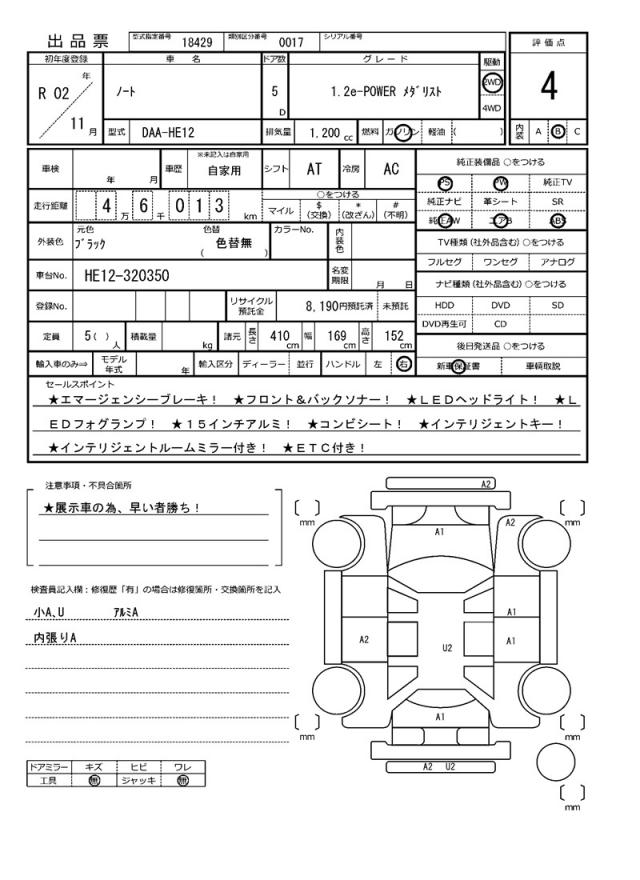 出品票 型式指定番号 18429 類別区分番号 0017 シリアル番号
評価点
4
内装 A B C
初年度登録 車名 ドア数 グレード 駆動
R 02 年 11 月 ノート 5 D 1.2e-POWER メダリスト 2WD 4WD
型式 DAA-HE12 排気量 1.200 cc 燃料 ガソリン 軽油 ( )
車検 年 月 車歴 ※未記入は自家用 自家用 シフト AT 冷房 AC
走行距離 4 万 6 千 0 1 3 km
○をつける
マイル $(交換) *(改ざん) #(不明)
外装色 元色 ブラック 色替 色替無 ( ) カラーNo. 内装色
車台No. HE12-320350 名変期限 月 日
登録No. リサイクル預託金 8,190円預託済 未預託
定員 5( ) 人 積載量 kg 諸元 長さ 410 cm 幅 169 cm 高さ 152 cm
輸入車のみ⇒ モデル年式 年 輸入区分 ディーラー 並行 ハンドル 左 右
純正装備品 ○をつける
PS PW 純正TV
純正ナビ 革シート SR
純正AW エアB ABS
TV種類(社外品含む)○をつける
フルセグ ワンセグ アナログ
ナビ種類(社外品含む)○をつける
HDD DVD SD
DVD再生可 CD
後日発送品 ○をつける
新車保証書 車輌取説
セールスポイント
★エマージェンシーブレーキ! ★フロント&バックソナー! ★LEDヘッドライト! ★L
EDフォグランプ! ★15インチアルミ! ★コンビシート! ★インテリジェントキー!
★インテリジェントルームミラー付き! ★ETC付き!
注意事項・不具合箇所
★展示車の為、早い者勝ち!
検査員記入欄:修復歴「有」の場合は修復箇所・交換箇所を記入
小A、U アルミA
内張りA
ドアミラー キズ ヒビ ワレ
工具 無 ジャッキ 無
A2
[ ] mm
[ ] mm
A1
A2
A1
A2
U2
A1
A1
[ ] mm
[ ] mm
A2 U2
[ ] mm